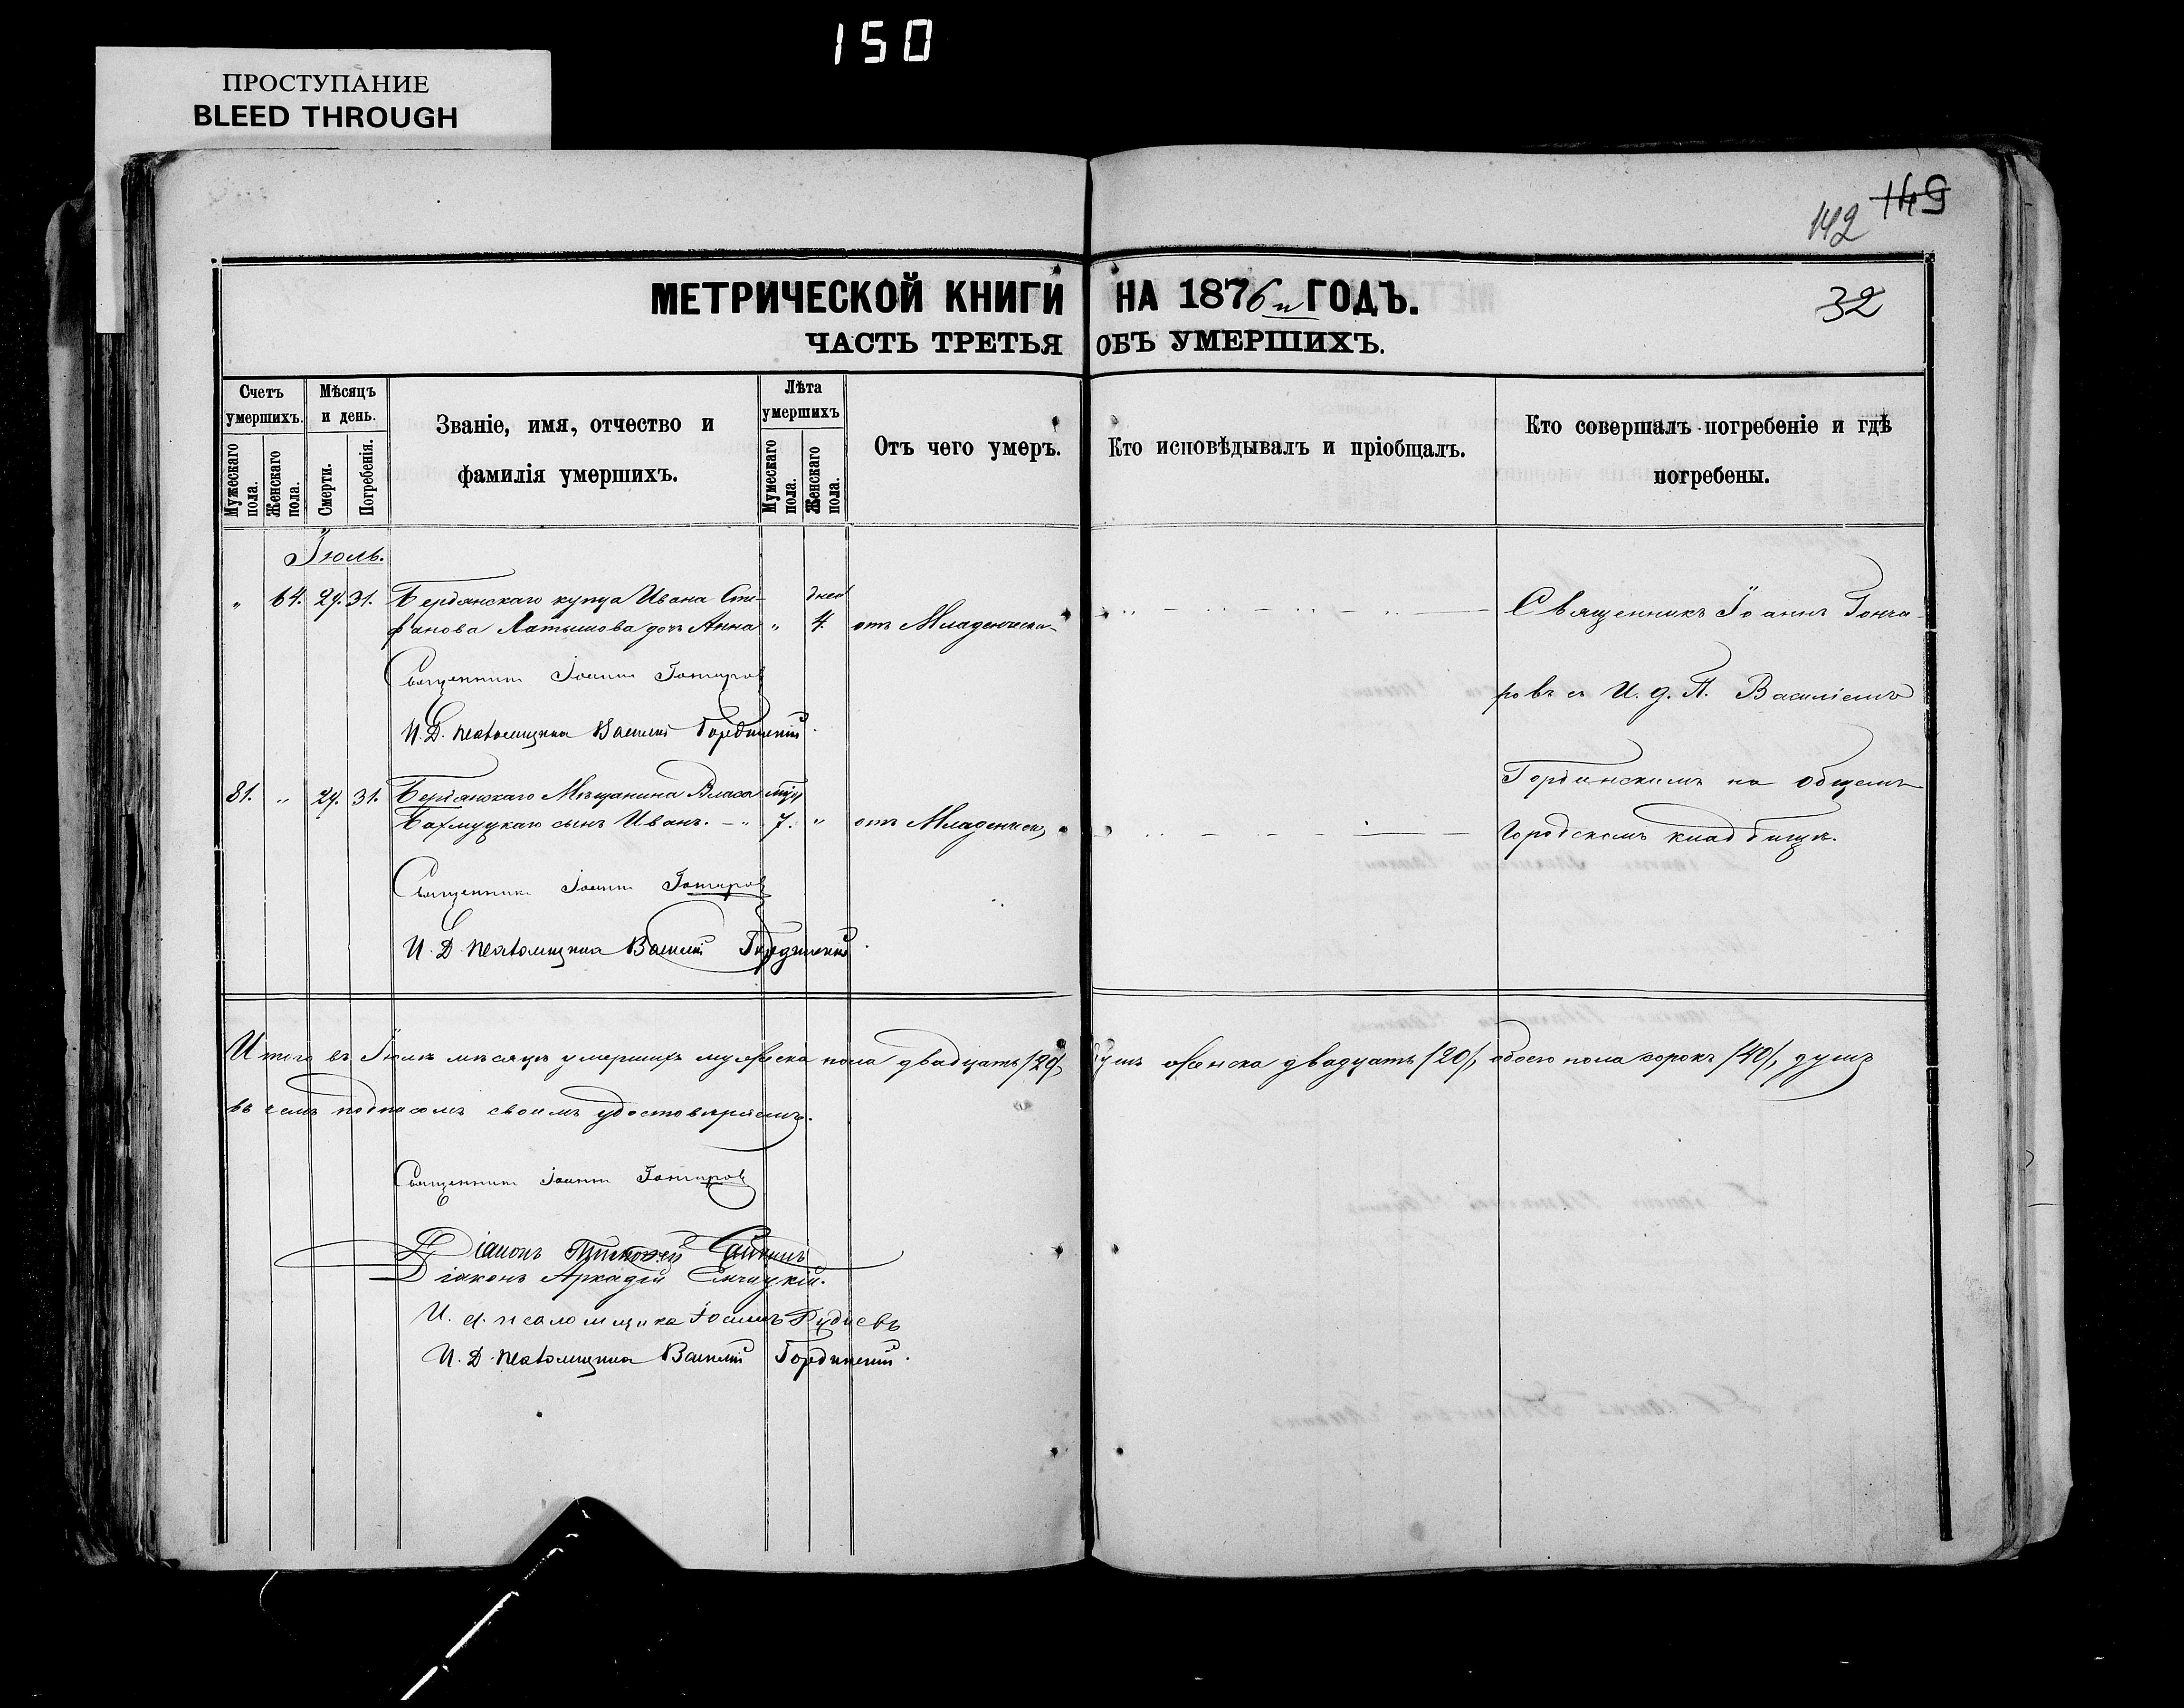 150
ПРОСТУПАНИЕ
BLEED THROUGH
142 149
МЕТРИЧЕСКОЙ КНИГИ НА 1876й ГОДЪ.
32
ЧАСТЬ ТРЕТЬЯ ОБЪ УМЕРШИХЪ.
Счетъ умершихъ.
Мужескаго пола.
Женскаго пола.
Мѣсяцъ и день.
Смерти.
Погребенія.
Званіе, имя, отчество и
фамилія умершихъ.
Лѣта умершихъ
Мужескаго пола.
Женскаго пола.
Отъ чего умеръ.
Кто исповѣдывалъ и пріобщалъ.
Кто совершалъ погребеніе и гдѣ
погребены.
Іюль.
" 64. 29. 31. Бердянскаго купца Ивана Сте- дней Священникъ Іоаннъ Гонча-
фанова Латышова дочь Анна " 4. отъ Младенческа-
Священникъ Іоаннъ Гончаров
ровъ съ И. д. П. Василіемъ
И. Д. псаломщика Василій Гординский.
81. " 29. 31. Бердянскаго Мѣщанина Власа Гординскимъ на общемъ
Бахмуцкаго сынъ Иванъ. — " 7. " отъ Младенческ, городскомъ кладбищѣ.
Священникъ Іоаннъ Гончаров
И. Д. псаломщика Василій Гординский.
Итого въ Іюлѣ мѣсяцѣ умершихъ мужеска пола двадцать /20/, душъ женска двадцать /20/, обоего пола сорокъ /40/, душъ
въ чемъ подписомъ своимъ удостовѣряемъ.
Священникъ Іоаннъ Гончаров
Діаконъ
Діаконъ Аркадій
И. д. псаломщика Іоаннъ
И. Д. псаломщика Василій Гординский.